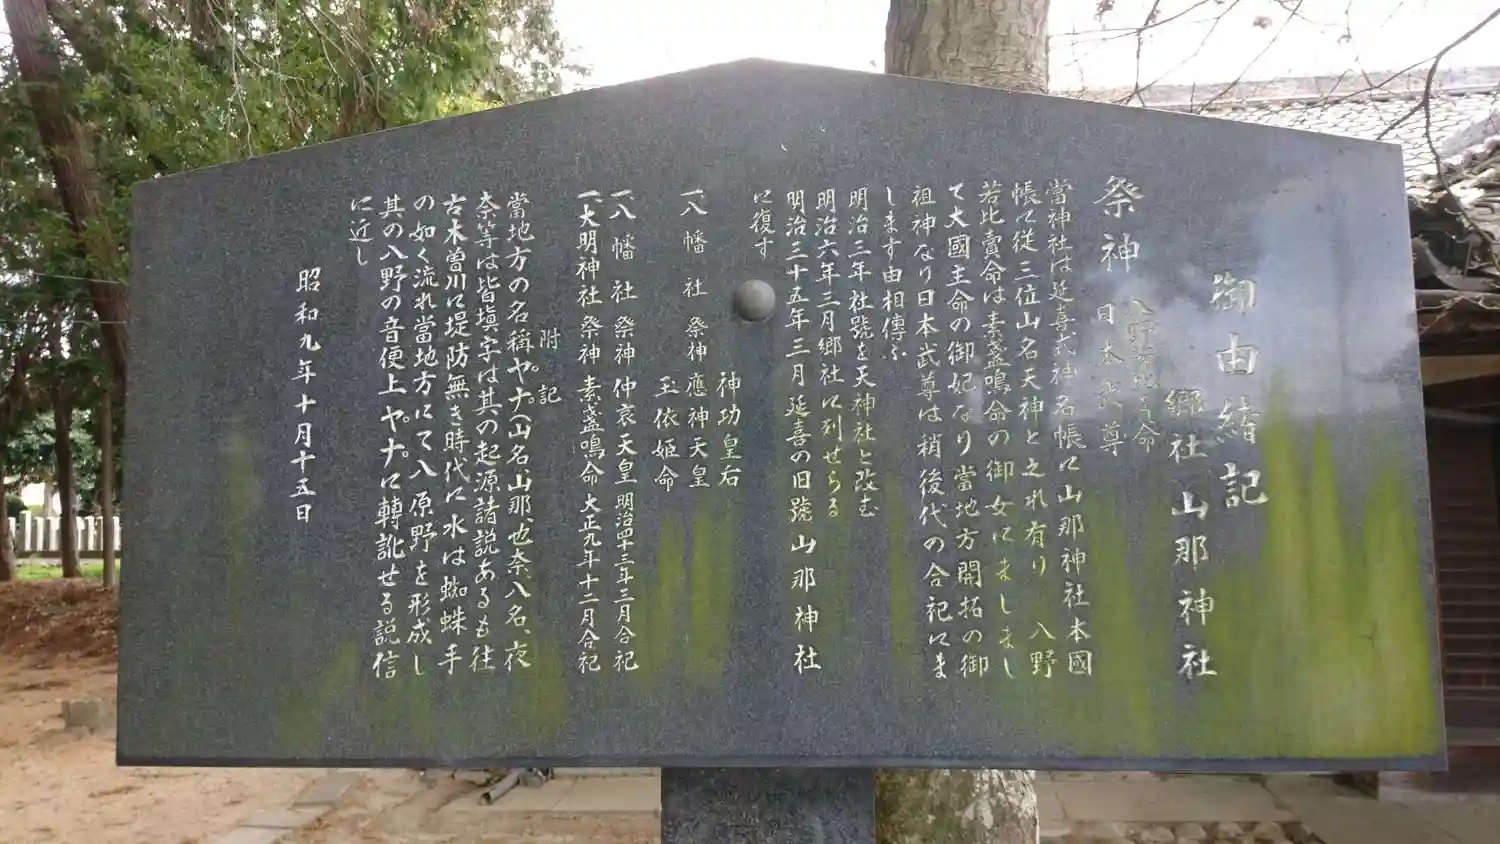 御由緒記
郷社 山那神社
八野若比賣命
祭神 日本武尊
當神社は延喜式神名帳に山那神社本國
帳に從三位山名天神と之れ有り 八野
若比賣命は素盞鳴命の御女にましまし
て大國主命の御妃なり當地方開拓の御
祖神なり日本武尊は稍後代の合祀にま
します由相傳ふ
明治三年社號を天神社と改む
明治六年三月郷社に列せらる
明治三十五年三月延喜の旧號山那神社
に復す
神功皇后
一八幡社 祭神 應神天皇
玉依姫命
一八幡社 祭神 仲哀天皇 明治四十三年三月合祀
一大明神社 祭神 素盞鳴命 大正九年十二月合祀
附記
當地方の名稱ヤナ(山名、山那、也奈、八名、夜
奈等は皆塡字は其の起源諸説あるも往
古木曽川に堤防無き時代に水は蜘蛛手
の如く流れ當地方にて八原野を形成し
其の八野の音便上ヤナに轉訛せる説信
に近し
昭和九年十月十五日